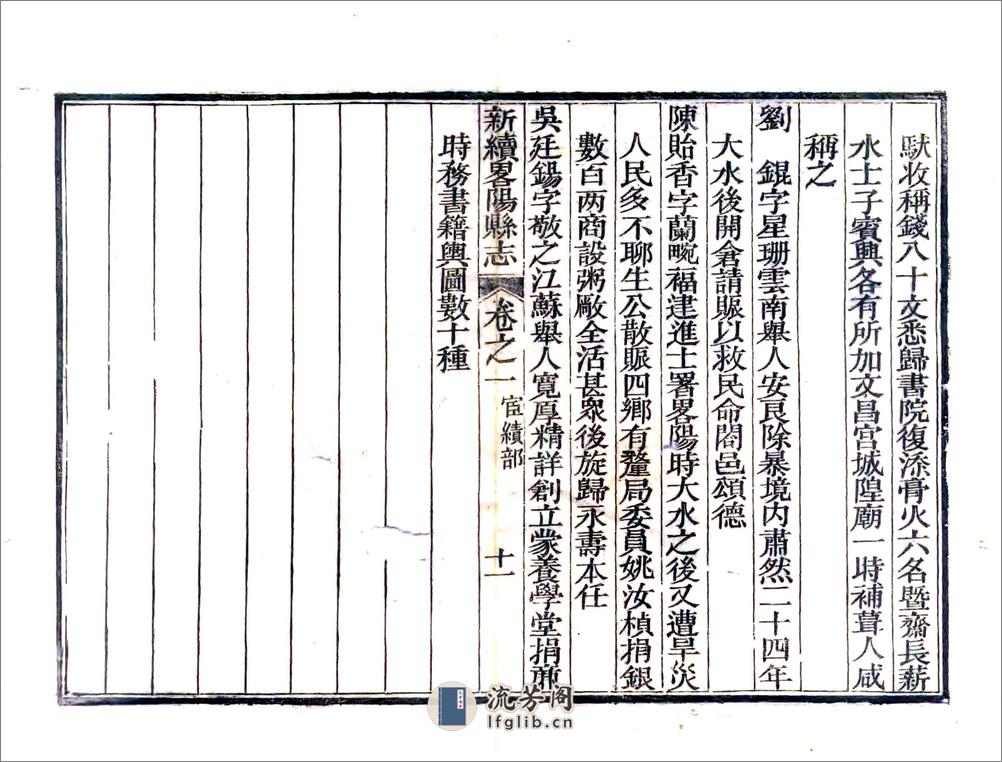 馱收稱錢八十文悉歸書院復添膏火六名暨齋長薪
水士子賓興各有所加文昌宮城隍廟一時補葺人咸
稱之
劉　錕字星珊雲南舉人安良除暴境內肅然二十四年
大水後開倉請賑以救民命閤邑頌德
陳貽香字蘭畹福建進士署畧陽時大水之後又遭旱災
人民多不聊生公散賑四鄉有釐局委員姚汝楨捐銀
數百两商設粥厰全活甚衆後旋歸永壽本任
吳廷錫字敬之江蘇舉人寬厚精詳創立蒙養學堂捐廉
新續畧陽縣志　卷之一　宦績部　十一
時務書籍輿圖數十種
流芳阁
lfglib.cn